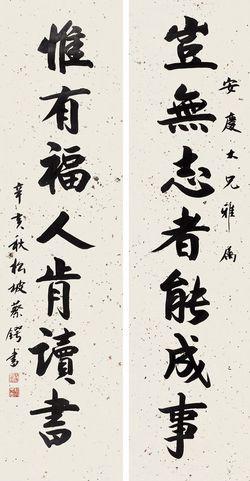 安慶大兄雅屬
豈無志者能成事
惟有福人肯讀書
辛亥秋松坡蔡鍔書